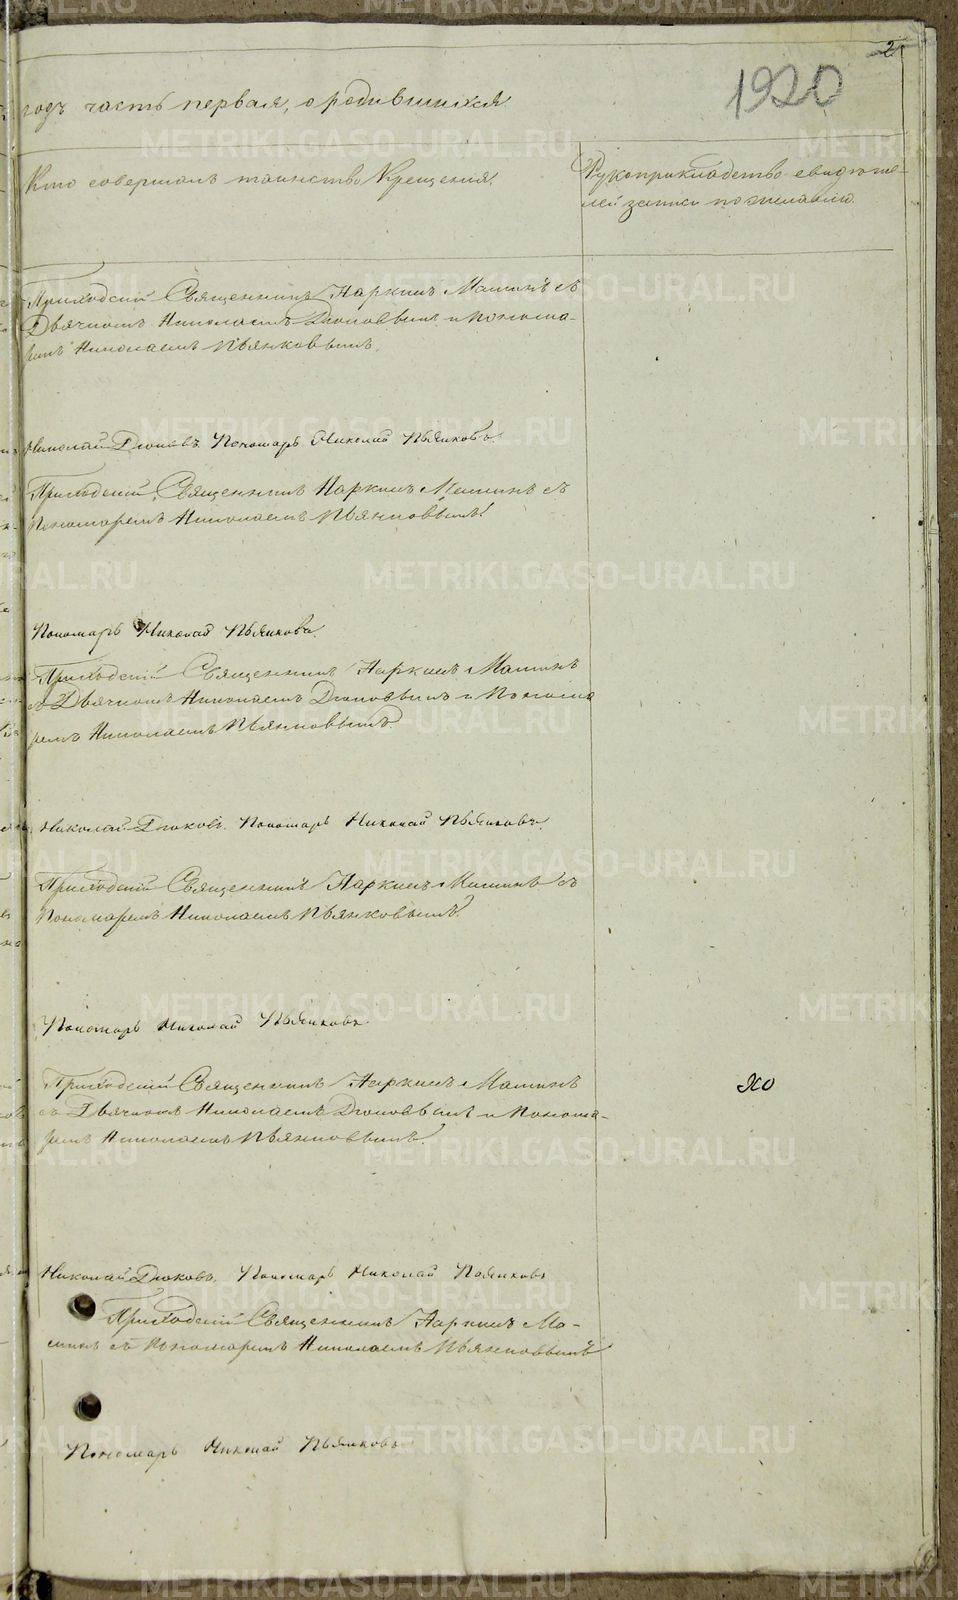 2
1920
годъ часть первая, о родившихся
Кто совершалъ таинство Крещения.
Рукоприкладство свидѣте-
лей записи по желанію.
Приходскій Священникъ Наркисъ Маминъ съ
Дьячкомъ Николаемъ Дюковымъ и Понома-
ремъ Николаемъ Пьянковымъ.
Николай Дюковъ. Пономарь Николай Пьянковъ.
Приходскій Священникъ Наркисъ Маминъ съ
Пономаремъ Николаемъ Пьянковымъ.
Пономарь Николай Пьянковъ.
Приходскій Священникъ Наркисъ Маминъ
съ Дьячкомъ Николаемъ Дюковымъ и Понома
ремъ Николаемъ Пьянковымъ.
Николай Дюковъ. Пономарь Николай Пьянковъ.
Приходскій Священникъ Наркисъ Маминъ съ
Пономаремъ Николаемъ Пьянковымъ.
Пономарь Николай Пьянковъ
Приходскій Священникъ Наркисъ Маминъ
съ Дьячкомъ Николаемъ Дюковымъ и Понома-
ремъ Николаемъ Пьянковымъ.
Николай Дюковъ. Пономарь Николай Пьянковъ
Приходскій Священникъ Наркисъ Ма-
минъ съ Пономаремъ Николаемъ Пьянковымъ
Пономарь Николай Пьянковъ
METRIKI.GASO-URAL.RU